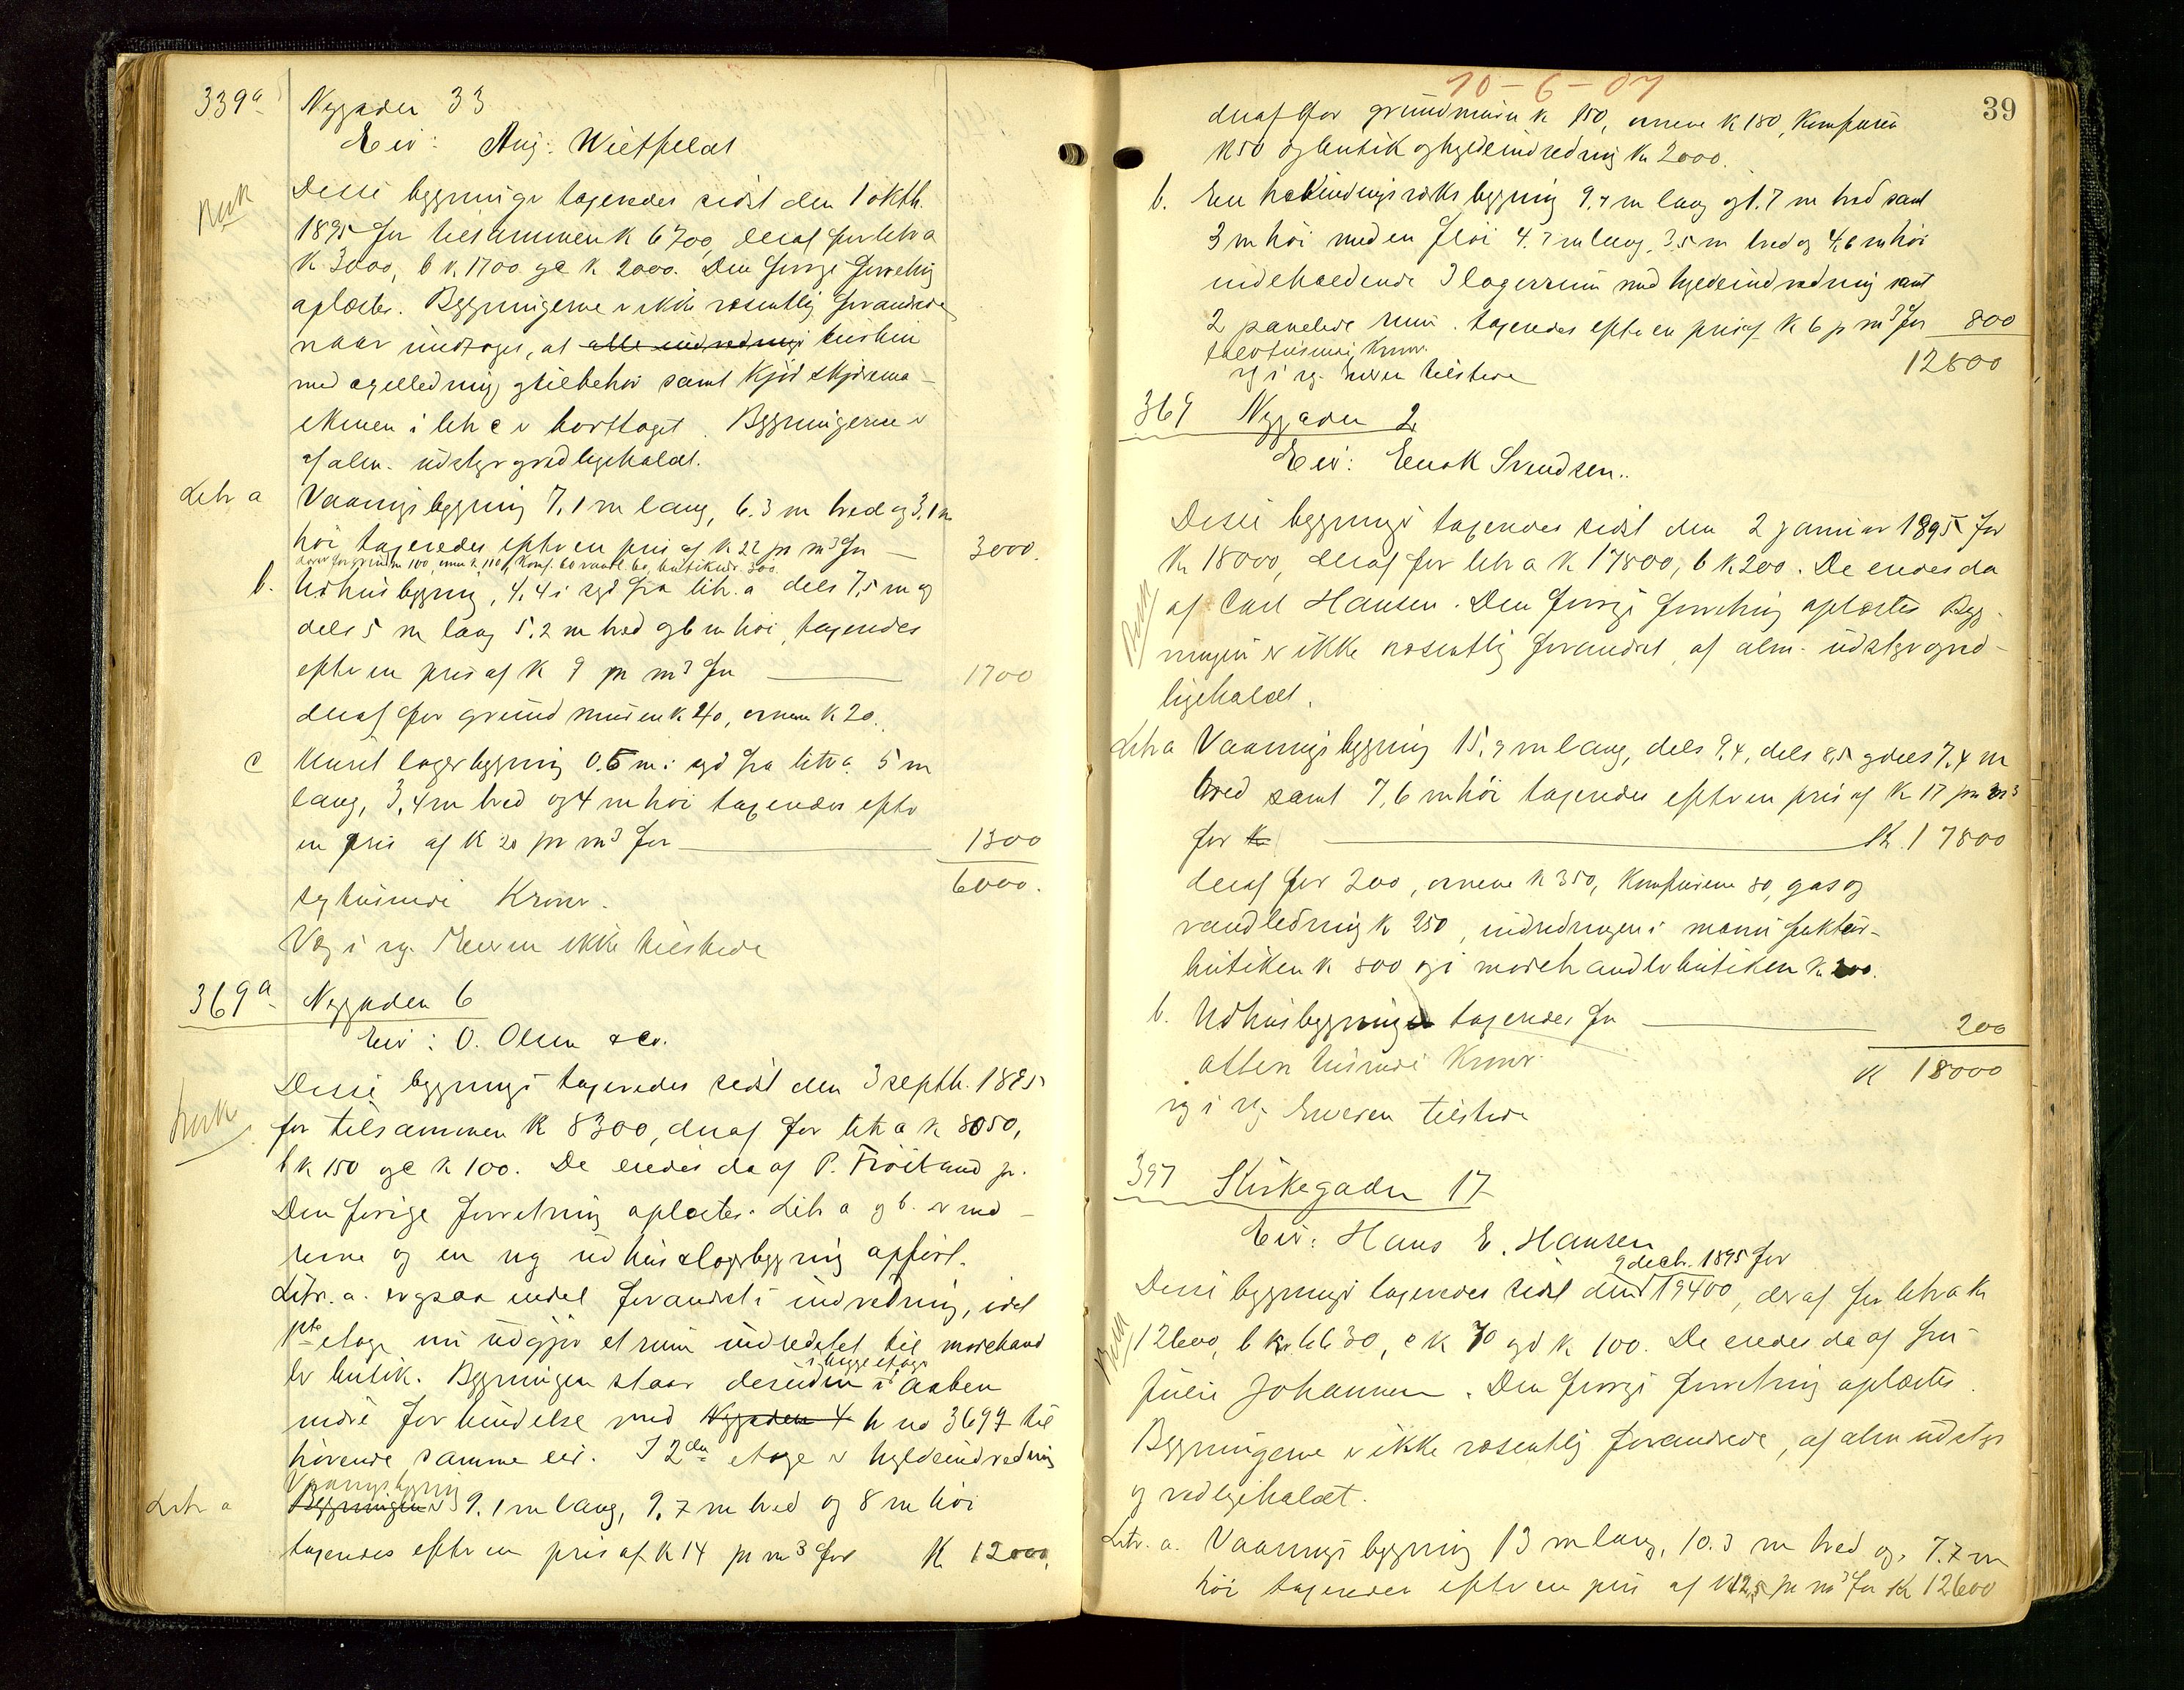 339a Nygaden 33
Eier: Aug: Wietfeldt
Disse bygninge taxeredes sidst den 1 oktb.
1895 for tilsammen k 6700, deraf for litr a
k 3000, b k. 1700 og c k 2000. Den forrige forretning
oplæstes. Bygningerne er ikke væsentlig forandrede
naar undtages, at alle indredning
med og tilbehør samt
i litr c er borttaget. Bygningerne er
af alm. udstyr og vedligeholdt.
Litr a Vaaningsbygning 7,1 m lang, 6.3 m bred og 3,1 m
høi taxeredes efter en pris af k 22 pr m3 for — 3000.
b. Udhusbygning, 4,4 i syd fra litr. a dels 7,5 m og
dels 5 m lang 5,2 m bred og 6 m høi, taxeredes
efter en pris af k 9 pr m3 for — 1700
deraf for grundmuren k 40, ovnene k 20.
c Muret lagerbygning 0.5 m i syd fra litr a. 5 m
lang, 3,4 m bred og 4 m høi taxeredes efter
en pris af k 20 pr m3 for — 1300
6000.
sextusinde Kroner.
Vg i rg. Eieren ikke tilstede
369a Nygaden 6
Eier: O. Olsen & Co.
Disse bygninge taxeredes sidst den 3 septb. 1895
for tilsammen k 8300, deraf for litr a k 8050,
b k 150 og c k 100. De eiedes da af P. Frøiland jr.
Den forrige forretning oplæstes. Litr a og b. er ned-
revne og en ny udhus & lagerbygning opført.
Litr. a. er ogsaa endel forandret i indredning, idet
1ste etage nu udgjør et rum indredetet til
butik. Bygningen staar desuden i begge etager i aaben
indre forbindelse med Nygaden 4 br no 3697 til
hørende samme eier. I 2den etage er hyldeindredning
Vaaningsbygning
Litr a Bygningen er 9.1 m lang, 9,7 m bred og 8 m høi
taxeredes efter en pris af k 14 pr m3 for K 12000,
10-6-07
39
deraf for grundmuren k 150, ovnene k 180, Komfuren
k 50 og butik og hyldeindredning Kr 2000.
b. En bygning 9,4 m lang og 1.7 m bred samt
3 m høi med en fløi 4.7 m lang, 3.5 m bred og 4,6 m høi
indeholdende 3 lagerrum med hyldeindredning samt
2 panelede rum. taxeredes efter en pris af K 6 p m3 for 800
tolvtusinde Kroner.
12800
vg i rg. Eieren tilstede
369 Nygaden 2
Eier: Enok Svendsen..
Disse bygninge taxeredes sidst den 2 januar 1895 for
Kr 18000, deraf for litr a k 17800, b k 200. De eiedes da
af Carl Hansen. Den forrige forretning oplæstes Byg-
ningen er ikke væsentlig forandret, af alm. udstyr og ved-
ligeholdt.
Litr a Vaaningsbygning 15,9 m lang, dels 9,4, dels 8,5 og dels 7,4 m
bred samt 7,6 m høi taxeredes efter en pris af k 17 pr m3
for k — K. 17800
deraf for 200, ovnene k 350, Komfurene 80, gas og
vandledning k 250, indredningen i manufaktur-
butiken k 800 og i butiken k 200.
b. Udhusbygning taxeredes for — 200
atten tusinde Kroner K 18000
vg i rg Eieren tilstede
397 Kirkegaden 17
Eier: Hans E. Hansen
9 decb. 1895 for
Disse bygninge taxeredes sidst den 19400, deraf for litr a k
12600, b kr. 6630, c k 70 og d k 100. De eiedes da af fru
Julie Johannesen. Den forrige forretning oplæstes.
Bygningerne er ikke væsentlig forandrede, af alm udstyr
og vedligeholdt.
Litr. a. Vaaningsbygning 13 m lang, 10.3 m bred og 7.7 m
høi taxeredes efter en pris af k 12,5 pr m3 for K 12600